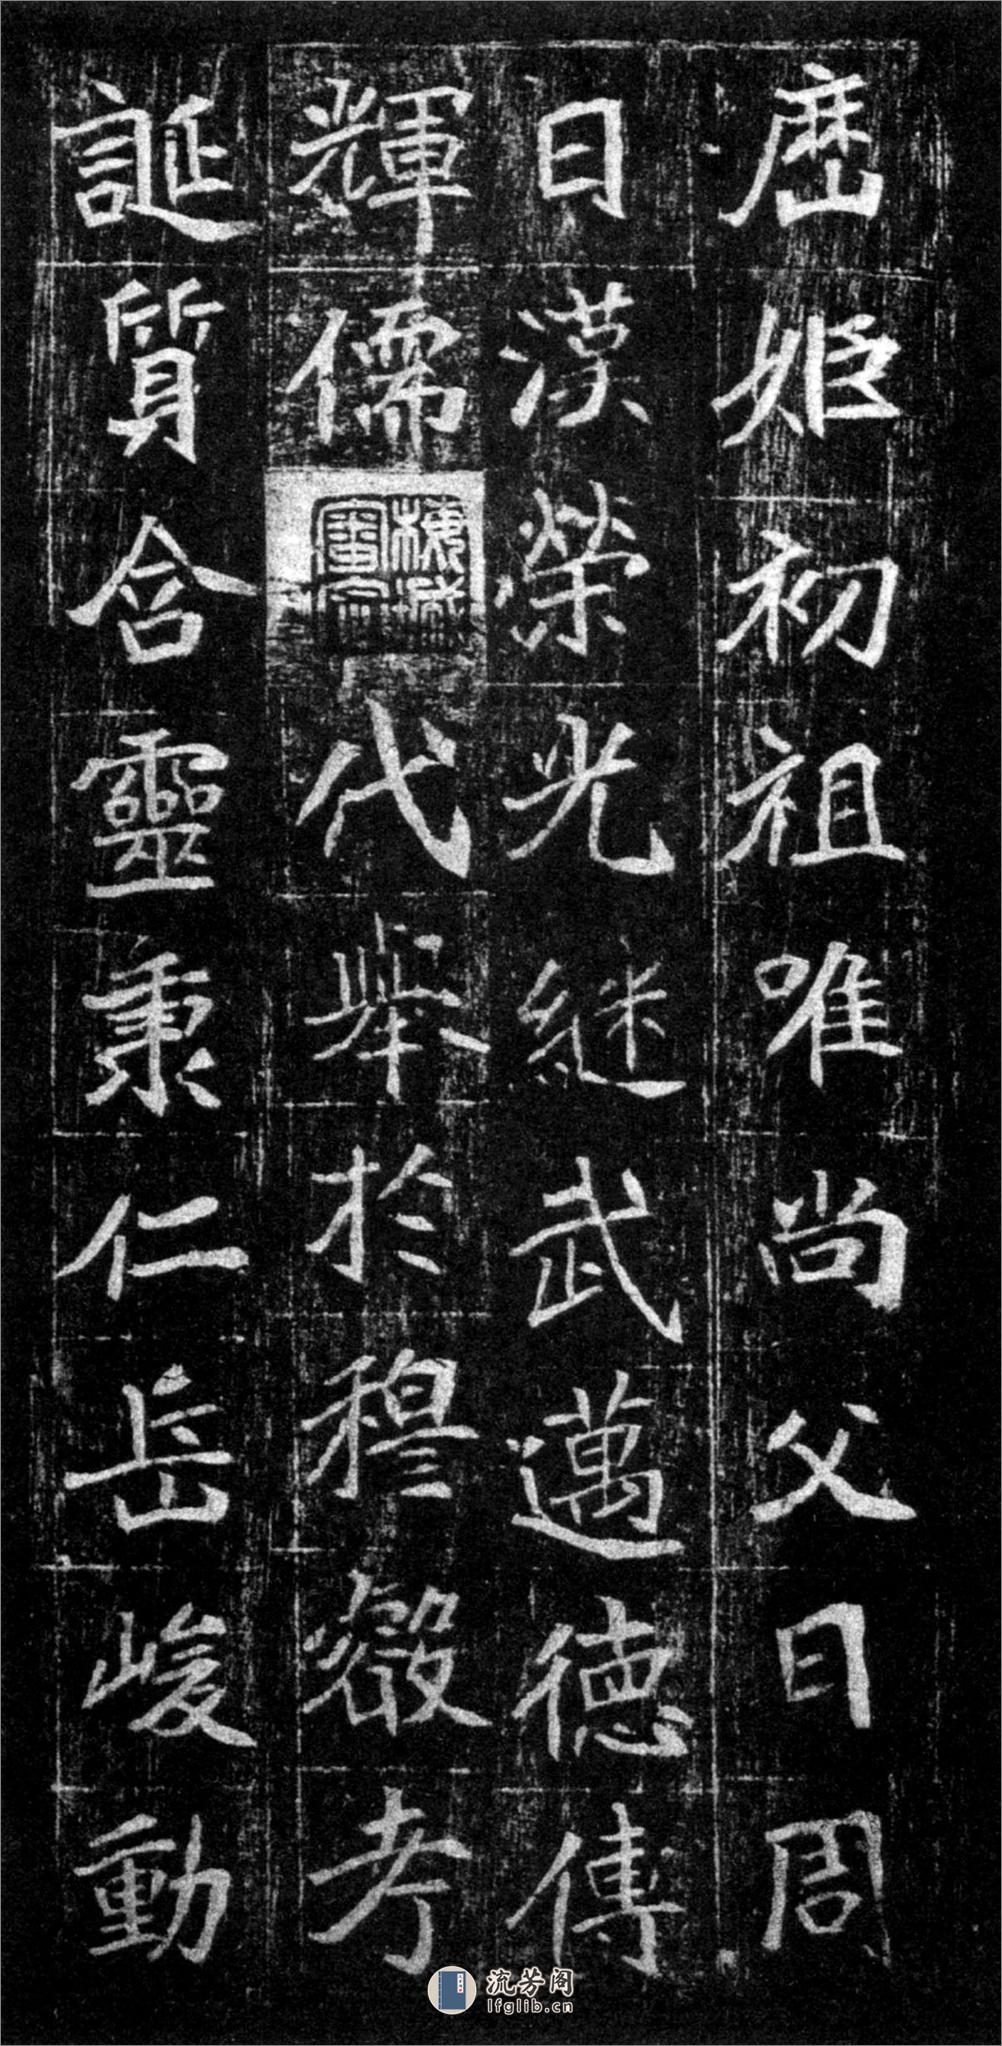 歷姬初祖唯尚父曰周
曰漢榮光継武邁德傳
輝儒代舉於穆叡考
誕質含靈秉仁岳峻動
流芳阁
lfglib.cn